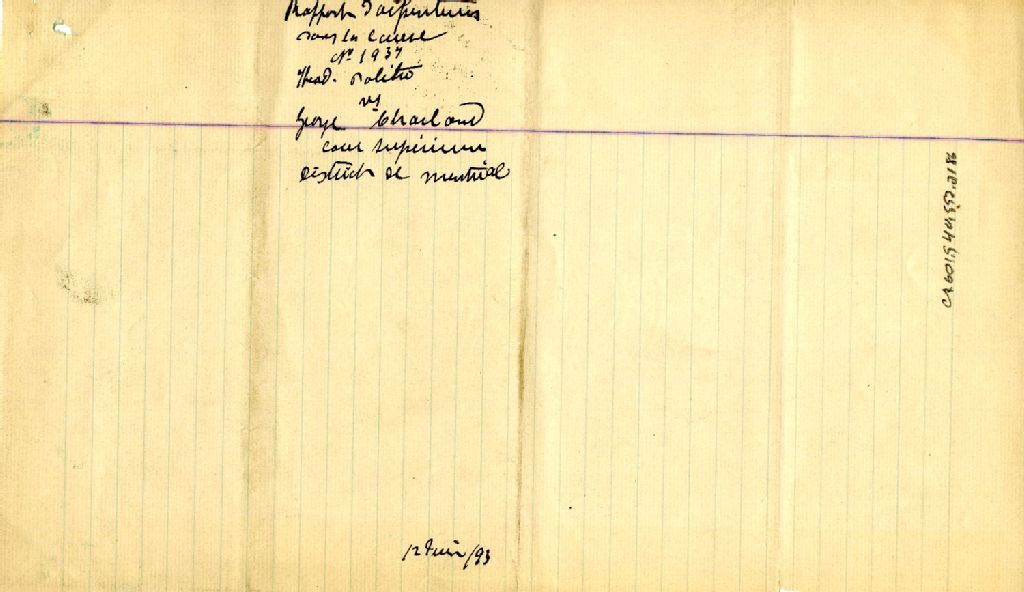 Rapport d'arpenteurs
dans la cause
No 1937
Thad.
vs
George Charland
cour supérieure
district de montréal
12 Juin/93
CA601S40